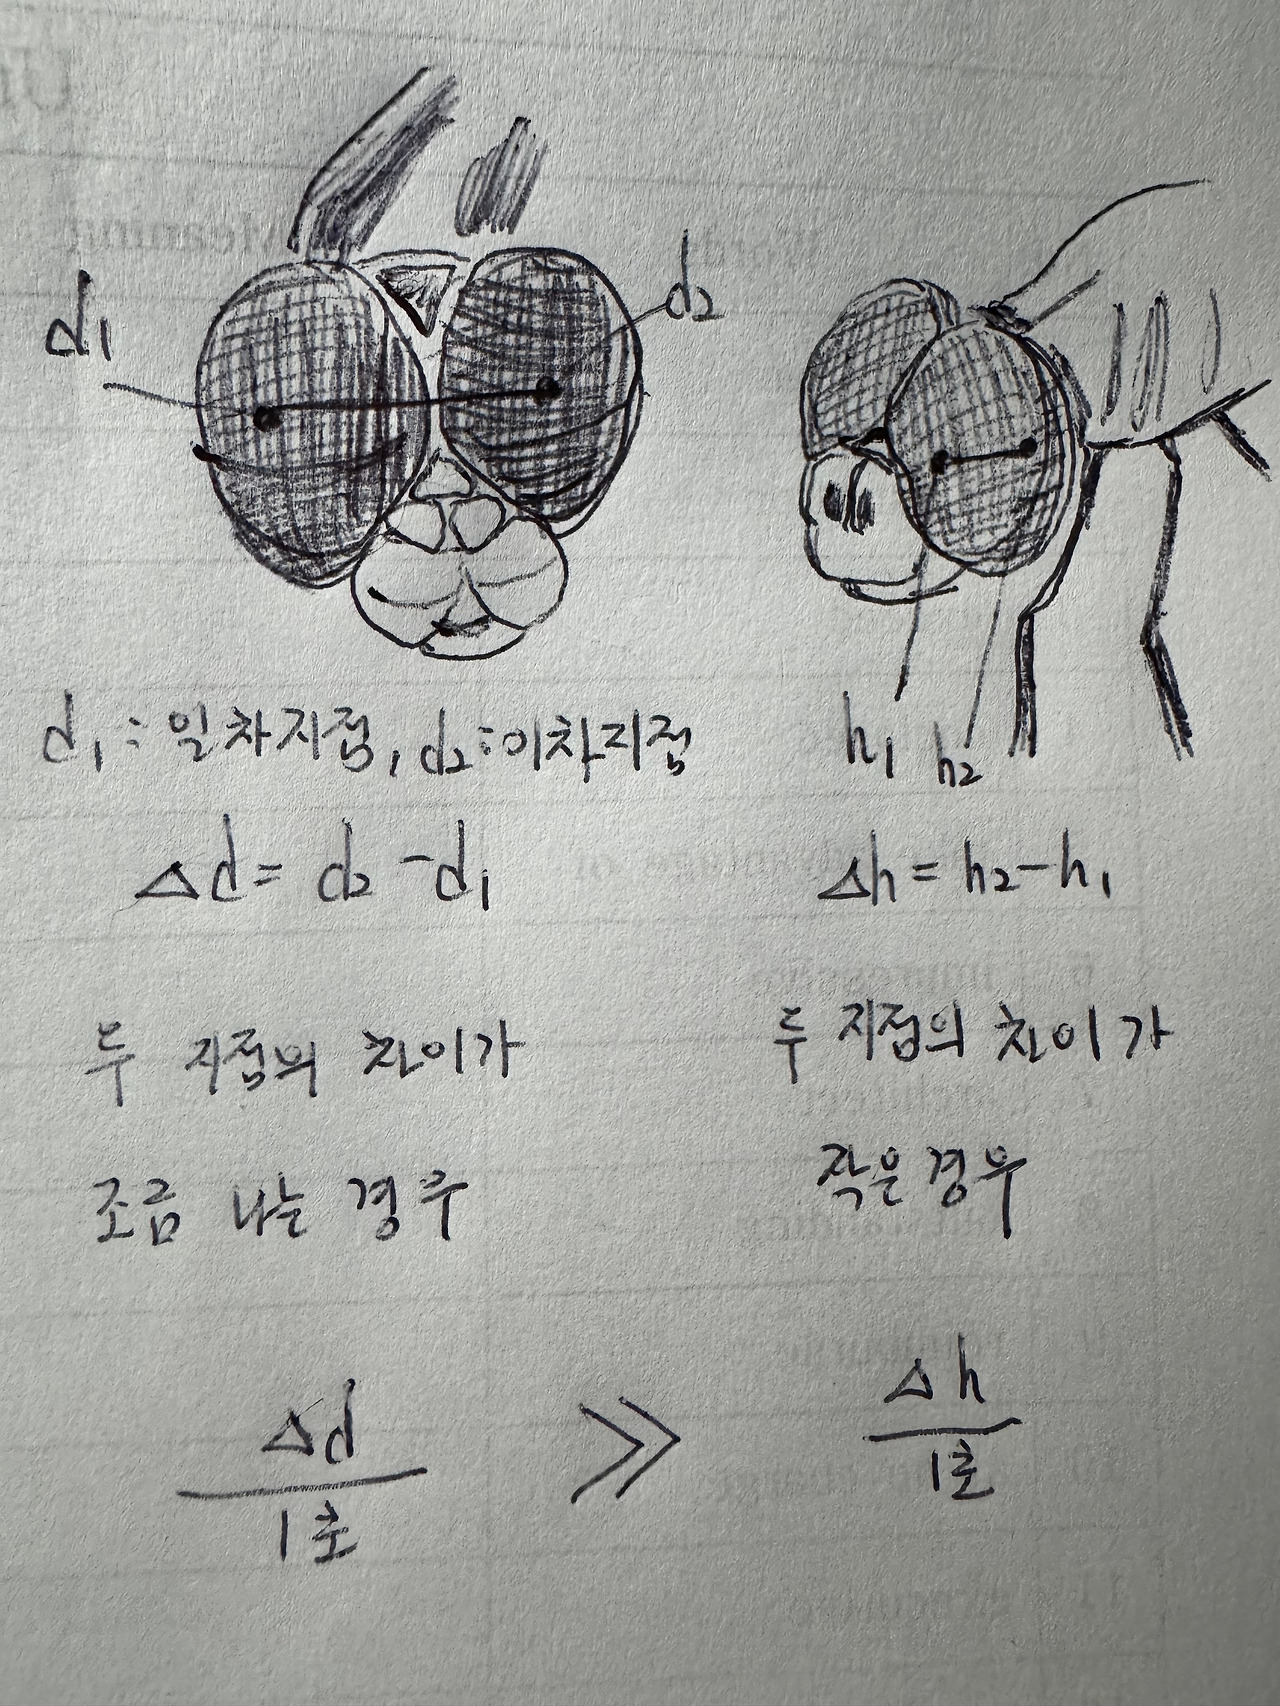 d1
d2
d1 : 일차지점, d2 : 이차지점
h1 h2
Δd = d2 - d1
Δh = h2 - h1
두 지점의 차이가
조금 나는 경우
두 지점의 차이가
작은 경우
Δd
1초
≫
Δh
1초